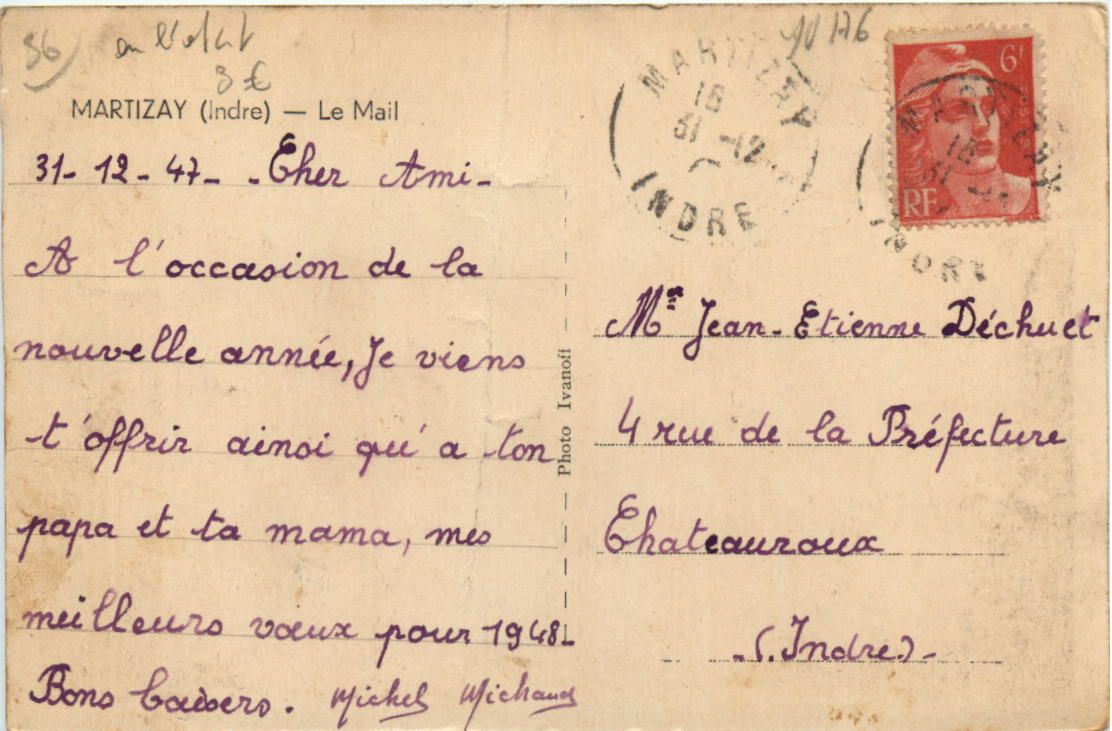 36
en l'état
3 €
MARTIZAY (Indre) — Le Mail
31-12-47- -Cher Ami-
A l'occasion de la
nouvelle année, Je viens
t'offrir ainsi qu'a ton
papa et ta mama, mes
meilleurs vœux pour 1948-
Bons baisers. Michel Michaud
Photo Ivanoff
MARTIZAY
18
31 -12
INDRE
6F
RF
MARTIZAY
18
31 -12
INDRE
Mr Jean-Etienne Déchuet
4 rue de la Préfecture
Chateauroux
-(Indre)-